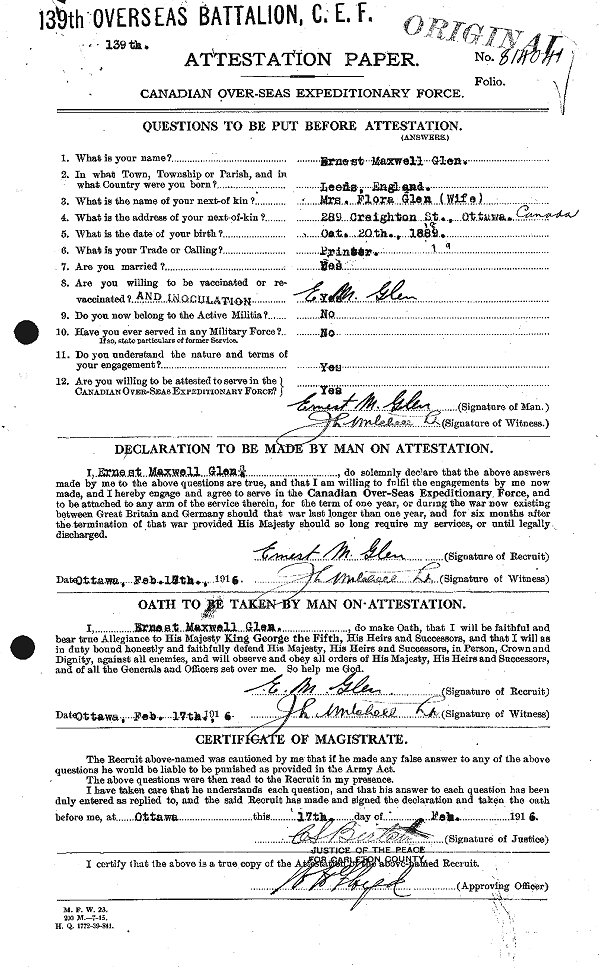 139th OVERSEAS BATTALION, C. E. F.
ORIGINAL
139th.
ATTESTATION PAPER.
No.
Folio.
CANADIAN OVER-SEAS EXPEDITIONARY FORCE.
QUESTIONS TO BE PUT BEFORE ATTESTATION.
(ANSWERS.)
1. What is your name? Ernest Maxwell Glen.
2. In what Town, Township or Parish, and in
what Country were you born? Leeds, England.
3. What is the name of your next-of kin? Mrs. Flora Glen (Wife)
4. What is the address of your next-of-kin? 289 Creighton St., Ottawa. Canada
5. What is the date of your birth? Oct. 20th., 1889.
6. What is your Trade or Calling? Printer.
7. Are you married? Yes
8. Are you willing to be vaccinated or re-
vaccinated? AND INOCULATION Yes E. M. Glen
9. Do you now belong to the Active Militia? No
10. Have you ever served in any Military Force? No
If so, state particulars of former Service.
11. Do you understand the nature and terms of
your engagement? Yes
12. Are you willing to be attested to serve in the }
CANADIAN OVER-SEAS EXPEDITIONARY FORCE? } Yes
Ernest M. Glen (Signature of Man.)
(Signature of Witness.)
DECLARATION TO BE MADE BY MAN ON ATTESTATION.
I, Ernest Maxwell Glen, do solemnly declare that the above answers
made by me to the above questions are true, and that I am willing to fulfil the engagements by me now
made, and I hereby engage and agree to serve in the Canadian Over-Seas Expeditionary Force, and
to be attached to any arm of the service therein, for the term of one year, or during the war now existing
between Great Britain and Germany should that war last longer than one year, and for six months after
the termination of that war provided His Majesty should so long require my services, or until legally
discharged.
Ernest M. Glen (Signature of Recruit)
Date Ottawa, Feb. 17th., 1916. (Signature of Witness)
OATH TO BE TAKEN BY MAN ON ATTESTATION.
I, Ernest Maxwell Glen., do make Oath, that I will be faithful and
bear true Allegiance to His Majesty King George the Fifth, His Heirs and Successors, and that I will as
in duty bound honestly and faithfully defend His Majesty, His Heirs and Successors, in Person, Crown and
Dignity, against all enemies, and will observe and obey all orders of His Majesty, His Heirs and Successors,
and of all the Generals and Officers set over me. So help me God.
E. M. Glen (Signature of Recruit)
Date Ottawa, Feb. 17th., 1916. (Signature of Witness)
CERTIFICATE OF MAGISTRATE.
The Recruit above-named was cautioned by me that if he made any false answer to any of the above
questions he would be liable to be punished as provided in the Army Act.
The above questions were then read to the Recruit in my presence.
I have taken care that he understands each question, and that his answer to each question has been
duly entered as replied to, and the said Recruit has made and signed the declaration and taken the oath
before me, at Ottawa this 17th. day of Feb. 1916.
(Signature of Justice)
JUSTICE OF THE PEACE
FOR CARLETON COUNTY
I certify that the above is a true copy of the Attestation of the above-named Recruit.
(Approving Officer)
M. F. W. 23.
200 M.—7-15.
H. Q. 1772-39-841.